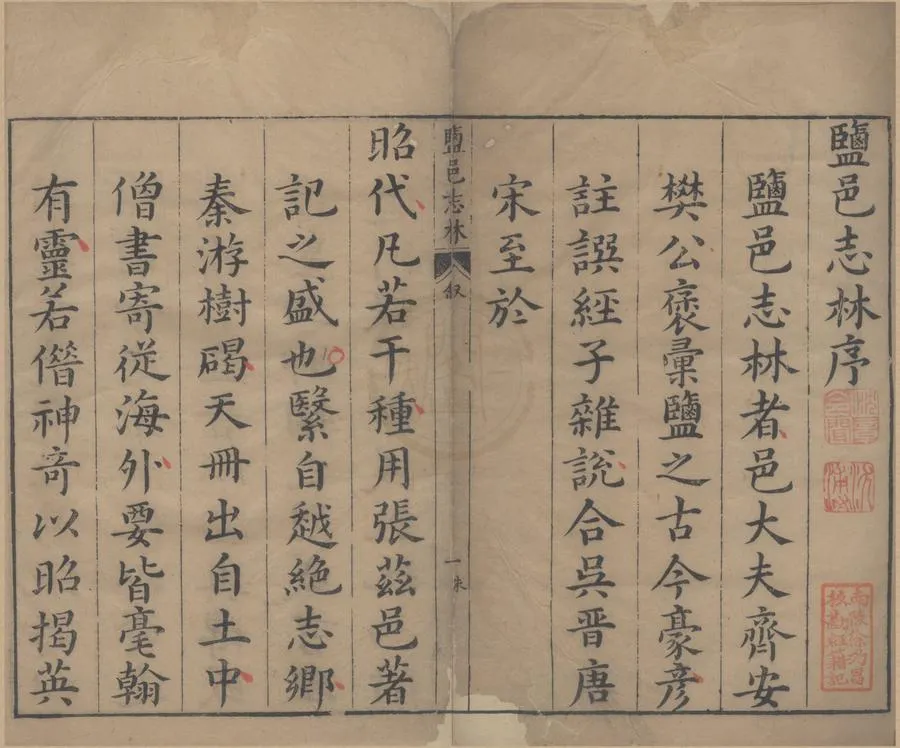 鹽邑志林序
鹽邑志林者邑大夫齊安
樊公裒彙鹽之古今豪彦
註譔經子雜說合吳晉唐
宋至於
鹽邑志林
叙
一
朱
昭代凡若干種用張茲邑著
記之盛也繄自越絶志鄉
秦游樹碣天冊出自土中
僧書寄從海外要皆毫翰
有靈若僭神竒以昭揭英